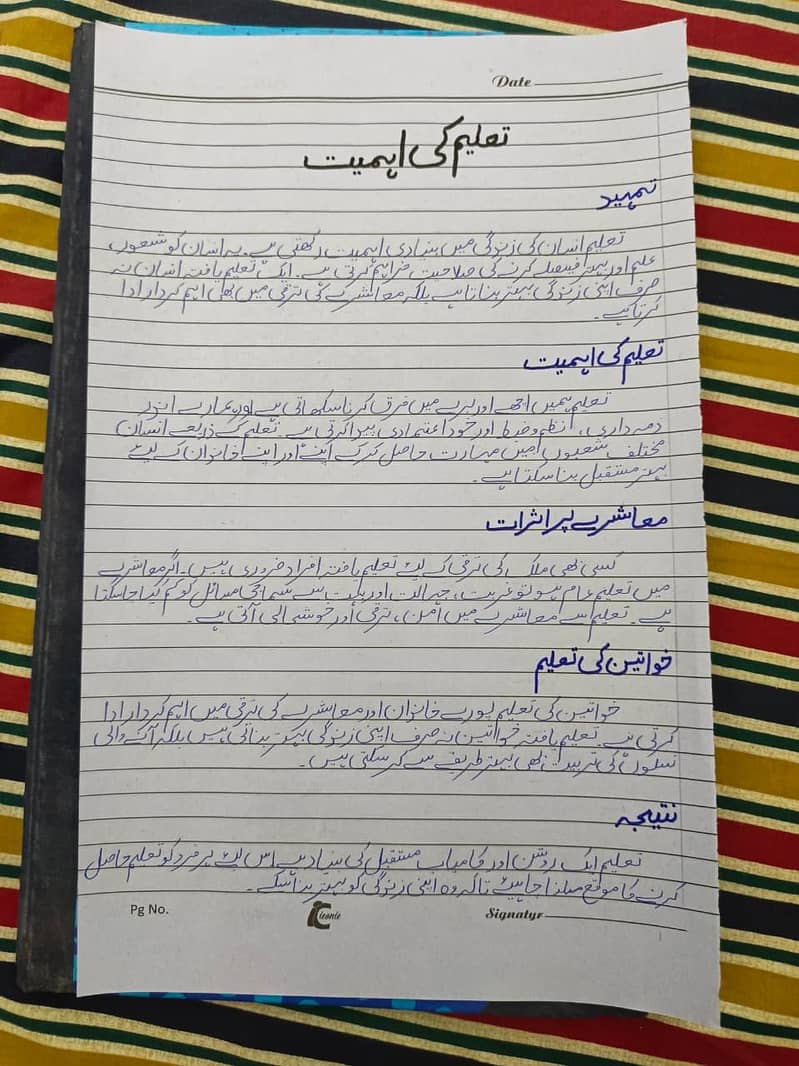 Date
تعلیم کی اہمیت
تمہید
تعلیم انسان کی زندگی میں بنیادی اہمیت رکھتی ہے۔ یہ انسان کو شعور،
علم اور بہتر فیصلے کرنے کی صلاحیت فراہم کرتی ہے۔ ایک تعلیم یافتہ انسان نہ
صرف اپنی زندگی بہتر بناتا ہے بلکہ معاشرے کی ترقی میں بھی اہم کردار ادا
کرتا ہے۔
تعلیم کی اہمیت
تعلیم ہمیں اچھے اور برے میں فرق کرنا سکھاتی ہے اور ہمارے اندر
ذمہ داری، نظم و ضبط اور خود اعتمادی پیدا کرتی ہے۔ تعلیم کے ذریعے انسان
مختلف شعبوں میں مہارت حاصل کر کے اپنے اور اپنے خاندان کے لیے
بہتر مستقبل بنا سکتا ہے۔
معاشرے پر اثرات
کسی بھی ملک کی ترقی کے لیے تعلیم یافتہ افراد ضروری ہیں۔ اگر معاشرے
میں تعلیم عام ہو تو غربت، جہالت اور بہت سے سماجی مسائل کو کم کیا جا سکتا
ہے۔ تعلیم سے معاشرے میں امن، ترقی اور خوشحالی آتی ہے۔
خواتین کی تعلیم
خواتین کی تعلیم پورے خاندان اور معاشرے کی ترقی میں اہم کردار ادا
کرتی ہے۔ تعلیم یافتہ خواتین نہ صرف اپنی زندگی بہتر بناتی ہیں بلکہ آنے والی
نسلوں کی تربیت بھی بہتر طریقے سے کر سکتی ہیں۔
نتیجہ
تعلیم ایک روشن اور کامیاب مستقبل کی بنیاد ہے اس لیے ہر فرد کو تعلیم حاصل
کرنے کا موقع ملنا چاہیے تاکہ وہ اپنی زندگی کو بہتر بنا سکے۔
Pg No. Iconic Signatyr